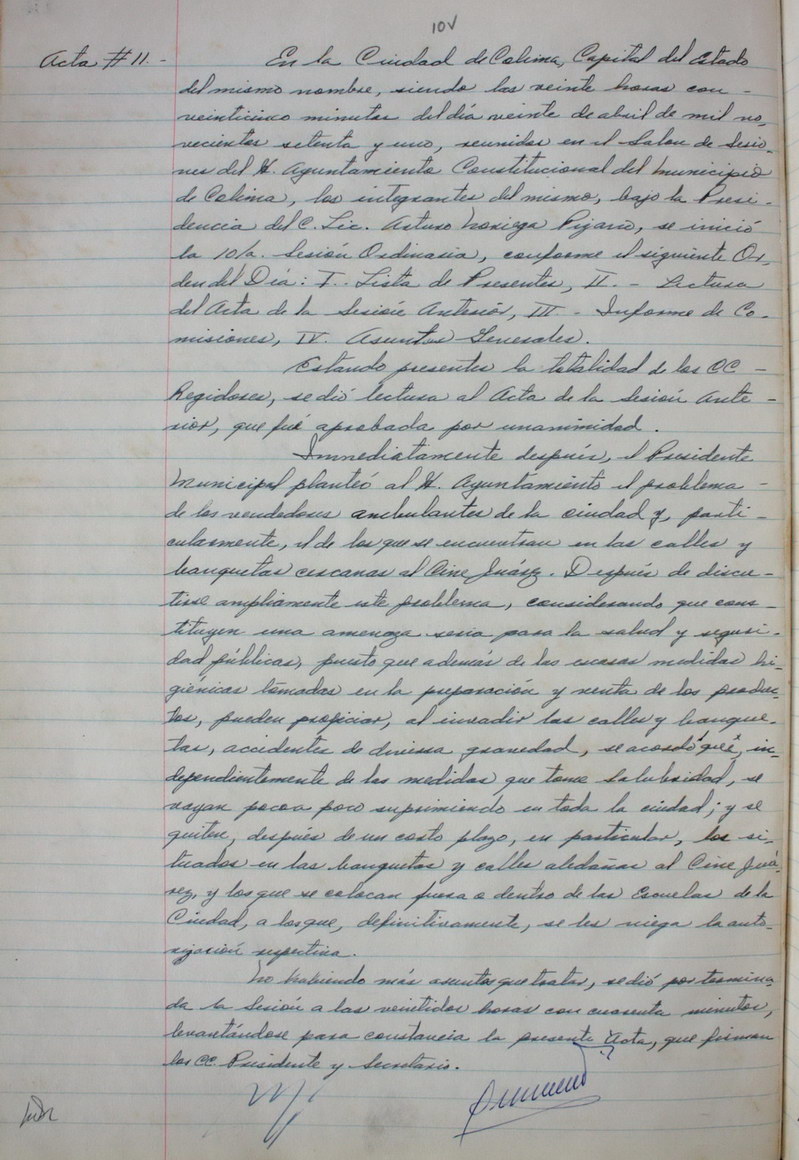 10V
Acta # 11.- En la Ciudad de Colima, Capital del Estado
del mismo nombre, siendo las veinte horas con -
veinticinco minutos del día veinte de abril de mil no-
vecientos setenta y uno, reunidos en el Salon de Sesio-
nes del H. Ayuntamiento Constitucional del Municipio
de Colima, los integrantes del mismo, bajo la Presi-
dencia del C. Lic. Arturo Noriega Pizano, se inició
la 10/a. Sesión Ordinaria, conforme el siguiente Or-
den del Día: I.- Lista de Presentes, II. - Lectura
del Acta de la Sesión Anterior, III - Informe de Co-
misiones, IV. Asuntos Generales.
Estando presentes la totalidad de los CC -
Regidores, se dió lectura al Acta de la Sesión Ante -
rior, que fué aprobada por unanimidad.
Inmediatamente después, el Presidente
Municipal planteó al H. Ayuntamiento el problema -
de los vendedores ambulantes de la ciudad y, parti-
cularmente, el de los que se encuentran en las calles y
banquetas cercanas al Cine Juárez. Después de discu-
tirse ampliamente este problema, considerando que cons-
tituyen una amenaza seria para la salud y seguri-
dad públicas, puesto que además de las escasas medidas hi-
giénicas tomadas en la preparación y venta de los produc-
tos, pueden propiciar, al invadir las calles y banque-
tas, accidentes de diversa gravedad, se acordó que, in-
dependientemente de las medidas que tome Salubridad, se
vayan poco a poco suprimiendo en toda la ciudad; y se
quiten, después de un corto plazo, en particular, los si-
tuados en las banquetas y calles aledañas al Cine Juá-
rez, y los que se colocan fuera o dentro de las Escuelas de la
Ciudad, a los que, definitivamente, se les niega la auto-
rización respectiva.
No habiendo más asuntos que tratar, se dió por termina-
da la Sesión a las veintidos horas con cuarenta minutos,
levantándose para constancia la presente Acta, que firman
los CC. Presidente y Secretario.